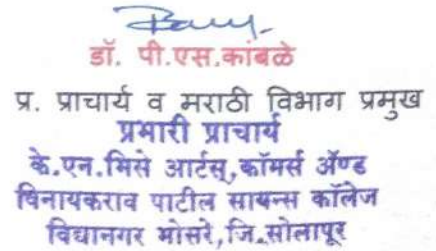 डॉ. पी.एस.कांबळे
प्र. प्राचार्य व मराठी विभाग प्रमुख
प्रभारी प्राचार्य
के.एन.भिसे आर्टस्,कॉमर्स ॲण्ड
विनायकराव पाटील सायन्स कॉलेज
विद्यानगर भोसरे,जि.सोलापूर